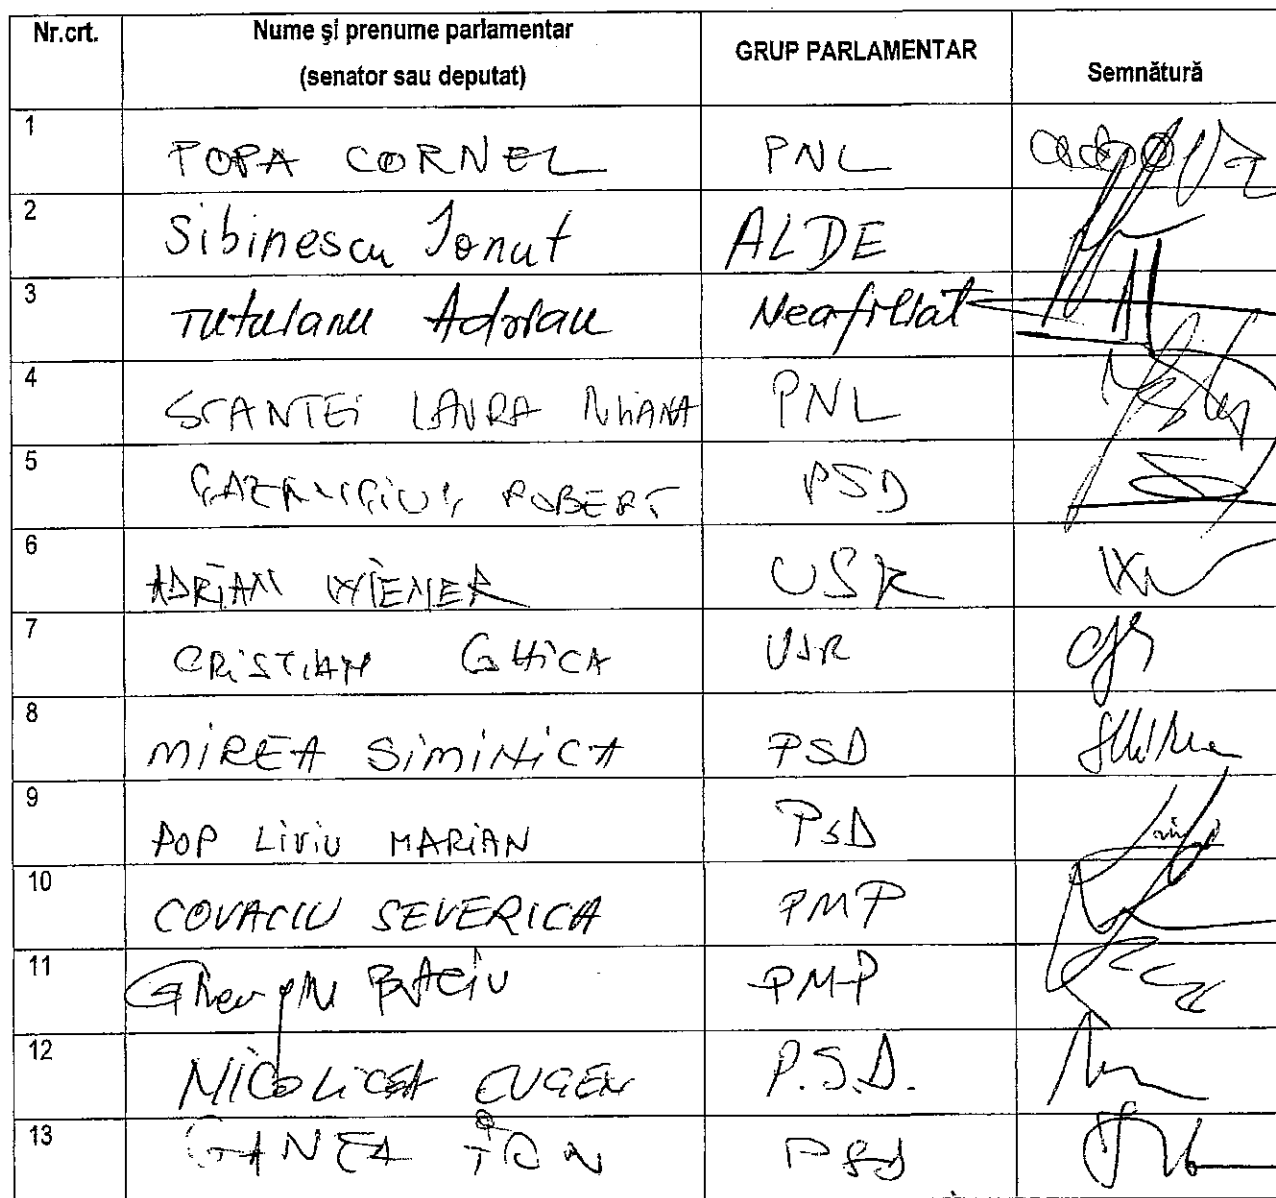 Nr.crt. Nume și prenume parlamentar (senator sau deputat) GRUP PARLAMENTAR Semnătură
1 POPA CORNEL PNL
2 Sibinescu Ionut ALDE
3 Tutuianu Adrian Neafiliat
4 SCANTEI LAURA IULIANA PNL
5 ROBERT PSD
6 ADRIAN WIENER USR
7 CRISTIAN GHICA USR
8 MIREA SIMINICA PSD
9 POP LIVIU MARIAN PSD
10 COVACIU SEVERICA PMP
11 Gheorghe BACIU PMP
12 NICOLICEA EUGEN P.S.D.
13 GANEA ION PSD